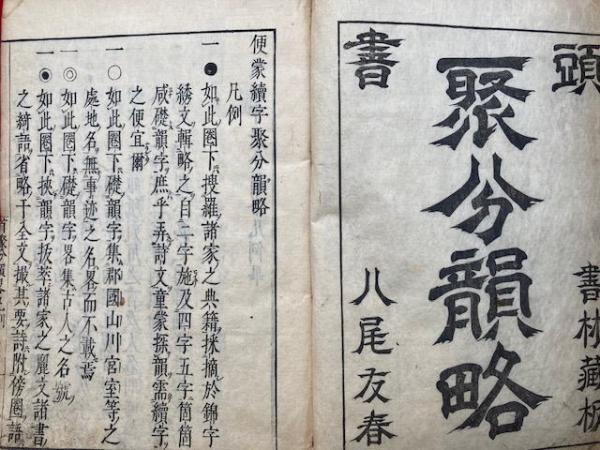 頭
書
聚分韻略
書林藏板
八尾友春
便蒙續字聚分韻略
凡例
一●如此圈下搜羅諸家之典籍採摘於錦字
綉文輯略之自二字施及四字五字箇箇
咸礎韻字庶乎弄詩文童蒙探韻需續字
之便宜爾
一○如此圈下礎韻字集郡國山川宮室等之
處地名無事迹之名畧而不載焉
一◎如此圈下礎韻字畧集古人之名號
一◉如此圈下挾韻字拔萃諸家之麗文諸書
之綺語省略于全文撮其要詩附傍圈語